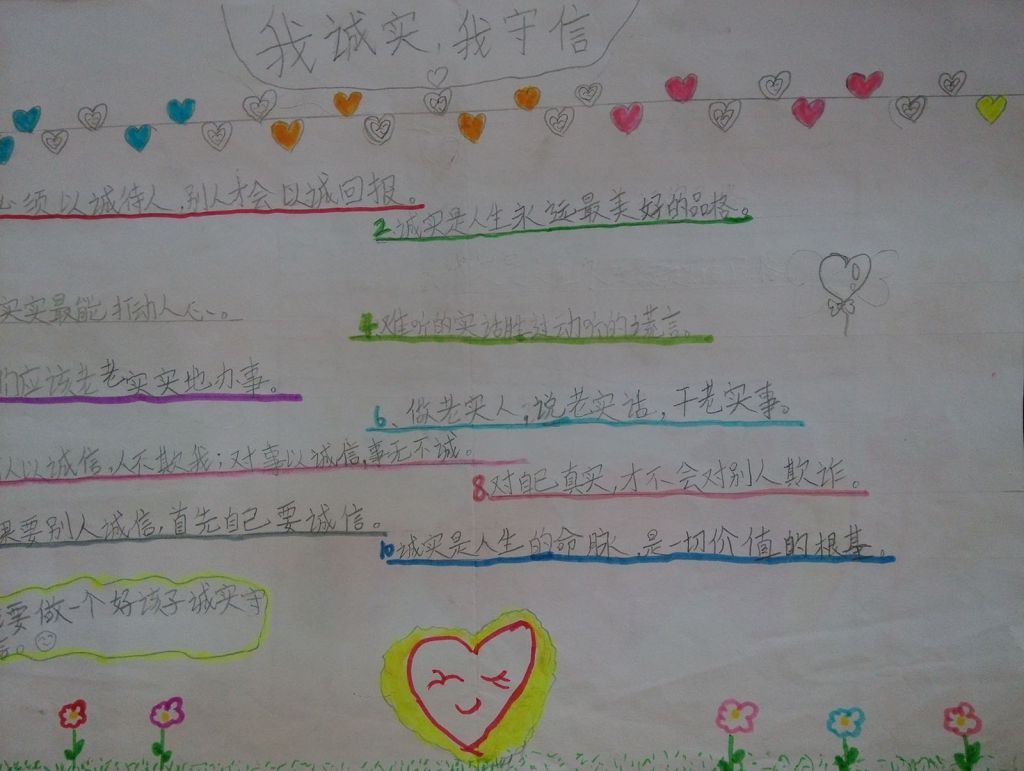 我诚实,我守信
须以诚待人,别人才会以诚回报。
2.诚实是人生永远最美好的品格。
实实最能打动人心。
4.难听的实话胜过动听的谎言。
们应该老老实实地办事。
6、做老实人,说老实话,干老实事。
人以诚信,人不欺我;对事以诚信,事无不诚。
8.对自己真实,才不会对别人欺诈。
果要别人诚信,首先自己要诚信。
10诚实是人生的命脉,是一切价值的根基。
要做一个好该子诚实守
。